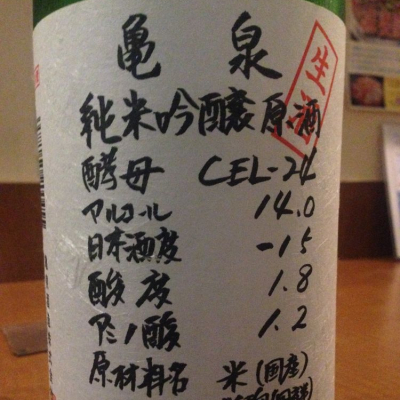 亀泉
純米吟醸原酒
生酒
酵母 CEL-24
アルコール 14.0
日本酒度 -15
酸度 1.8
アミノ酸 1.2
原材料名 米(国産)